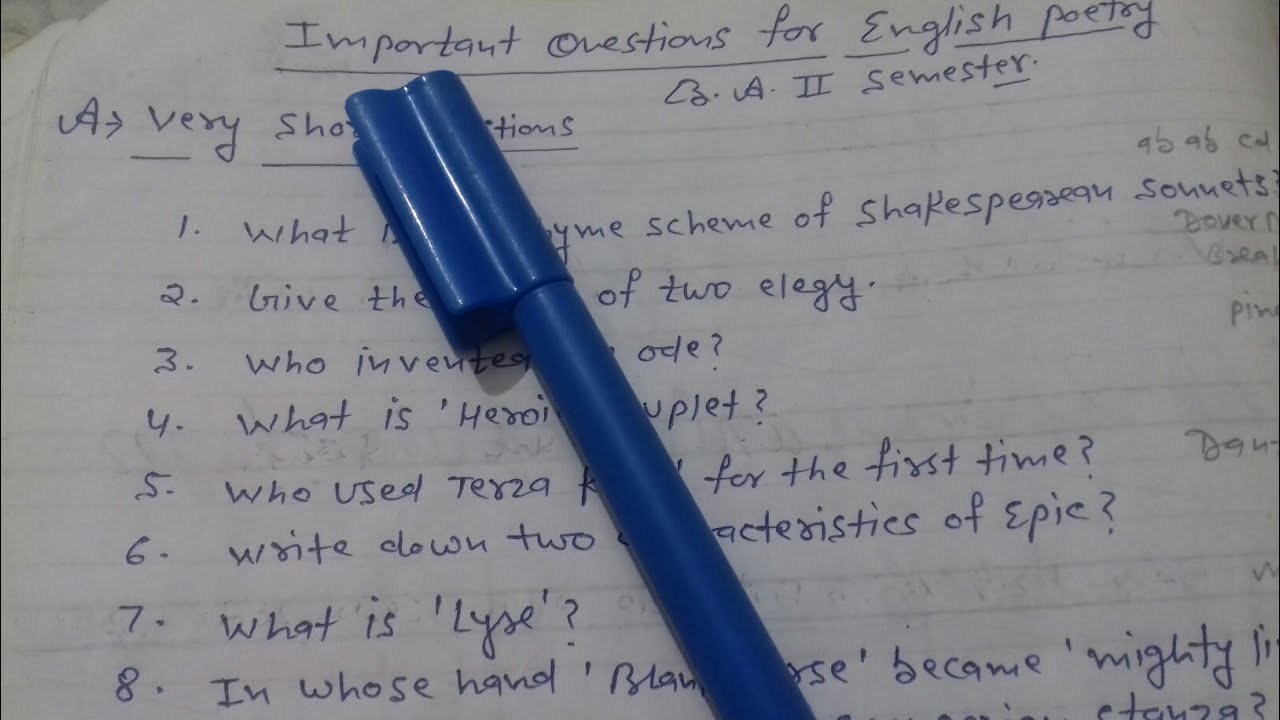 Important Questions for English poetry
B. A. II Semester.
A→ Very
ab ab cd
1. What rhyme scheme of Shakespearean Sonnets?
Dover
2. Give the of two elegy.
3. Who invented ode?
4. What is 'Heroic couplet?
5. Who used Terza for the first time?
6. Write down two characteristics of Epic?
7. What is 'Lyre'?
8. In whose hand 'Blank verse' became 'mighty
stanza?